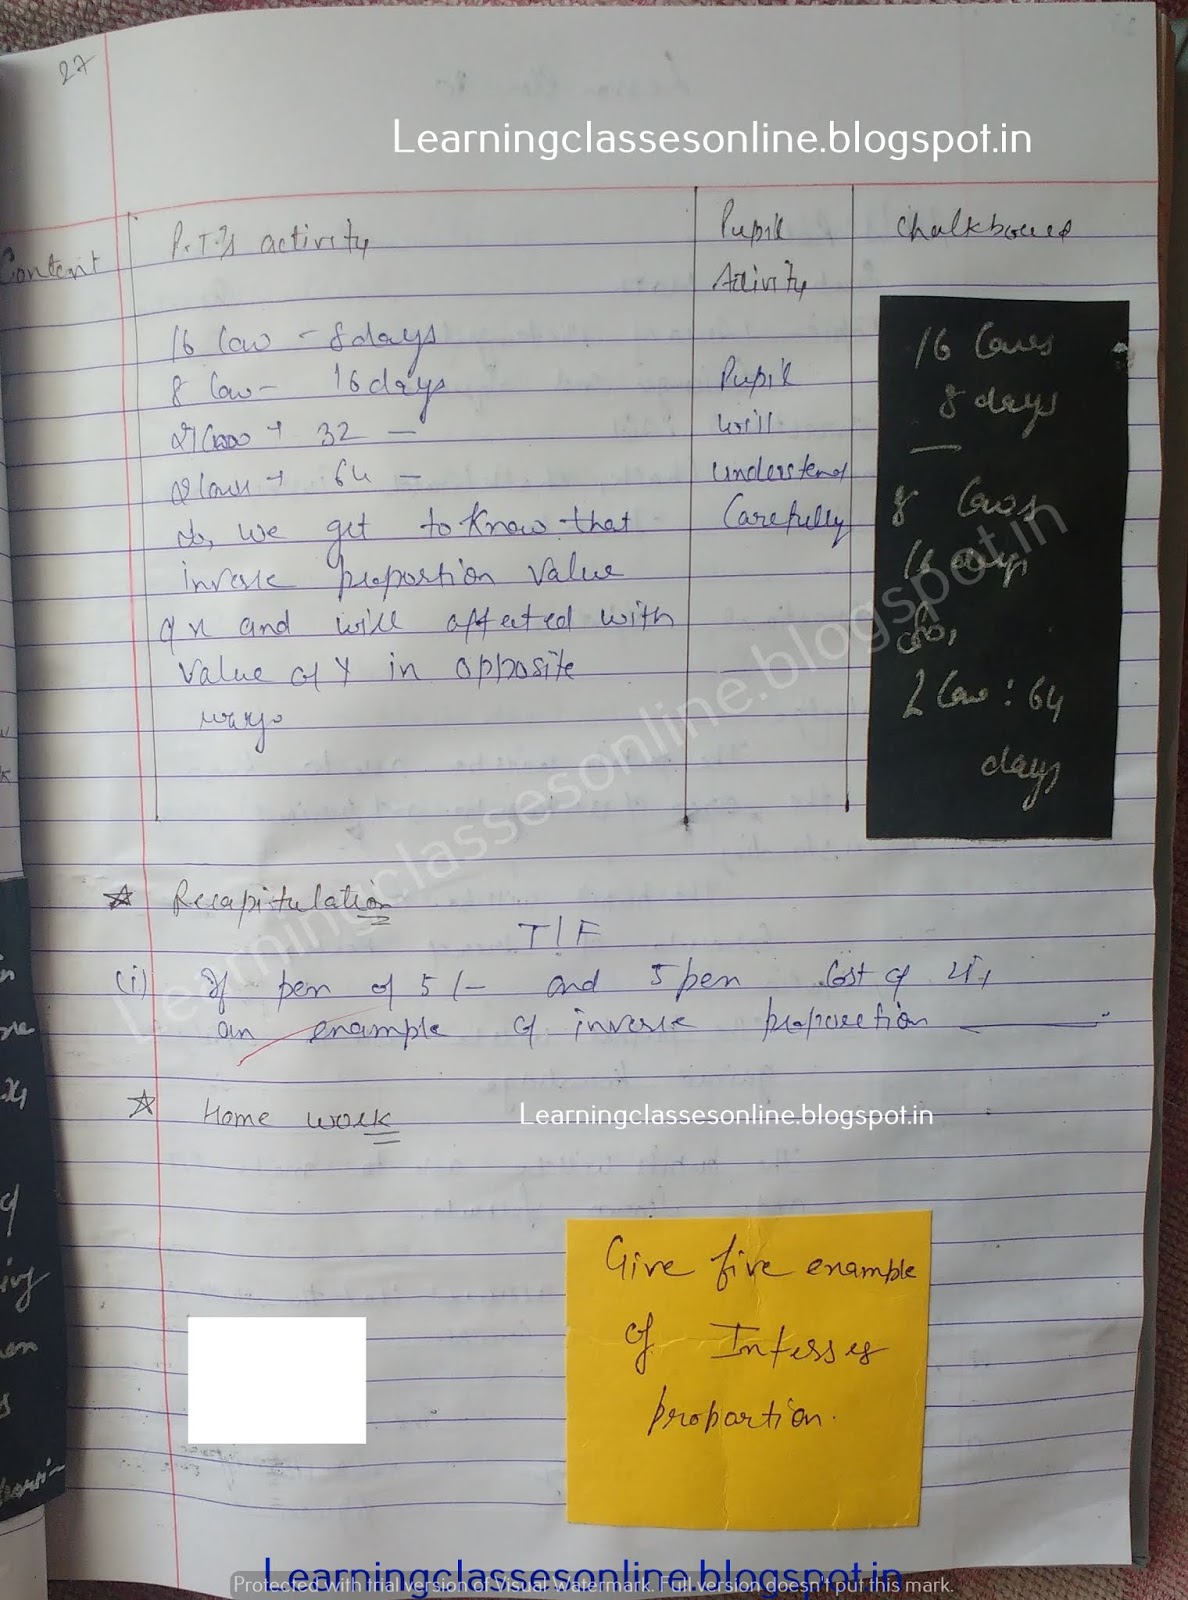 27
Learningclassesonline.blogspot.in
Content
P.T.'s activity
Pupil
Activity
Chalkboard
16 Cow - 8 days
8 Cow - 16 days
32 -
64 -
So, we get to know that
inverse proportion value
of x and will affected with
value of y in opposite
way.
Pupil
will
understand
Carefully
16 Cows
8 days
8 Cows
16 days
So,
2 Cow : 64
days
Learningclassesonline.blogspot.in
☆ Recapitulation
T/F
(i) If pen of 5/- and 5 pen Cost of
an enample of inverse proporetion
☆ Home work
Learningclassesonline.blogspot.in
Give five enample
of
propartion.
Learningclassesonline.blogspot.in
Protected with trial version of Visual Watermark. Full version doesn't put this mark.